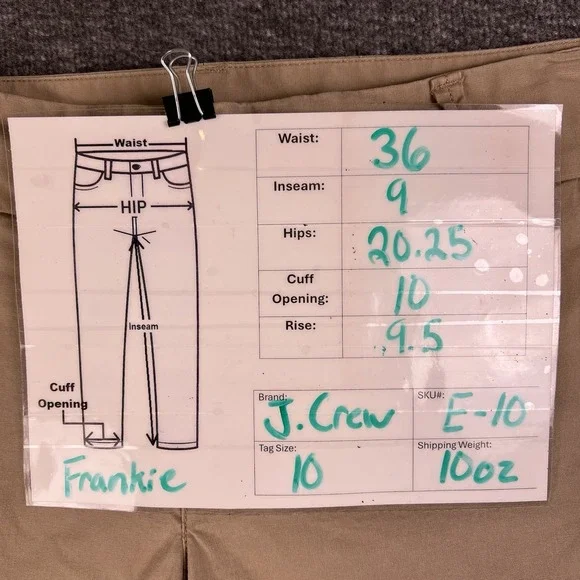 Waist:
HIP
Inseam
Cuff
Opening
Frankie
Waist: 36
Inseam: 9
Hips: 20.25
Cuff
Opening: 10
Rise: 9.5
Brand: J. Crew
SKU#: E-10
Tag Size: 10
Shipping Weight: 10oz